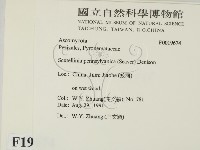 國立自然科學博物館
NATIONAL MUSEUM OF NATURAL SCIENCE
TAICHUNG, TAIWAN, R.O.CHINA
Ascomycota
Pezizales, Pyronemataceae
Scutellinia pennsylvanica (Seaver) Denison
Loc.: China,
on wet wood
Col.: W.Y. Zhuang
Date: Aug.29, 1991
Det.: W.Y. Zhuang
F19